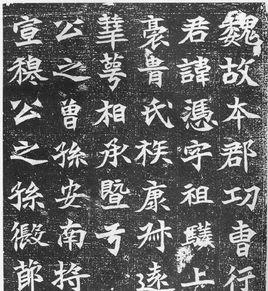 魏故本郡功曹行
君諱憑字祖上
豪胄氏族康叔遠
華萼相承暨于
公之曾孫安南將
宣穆公之孫節